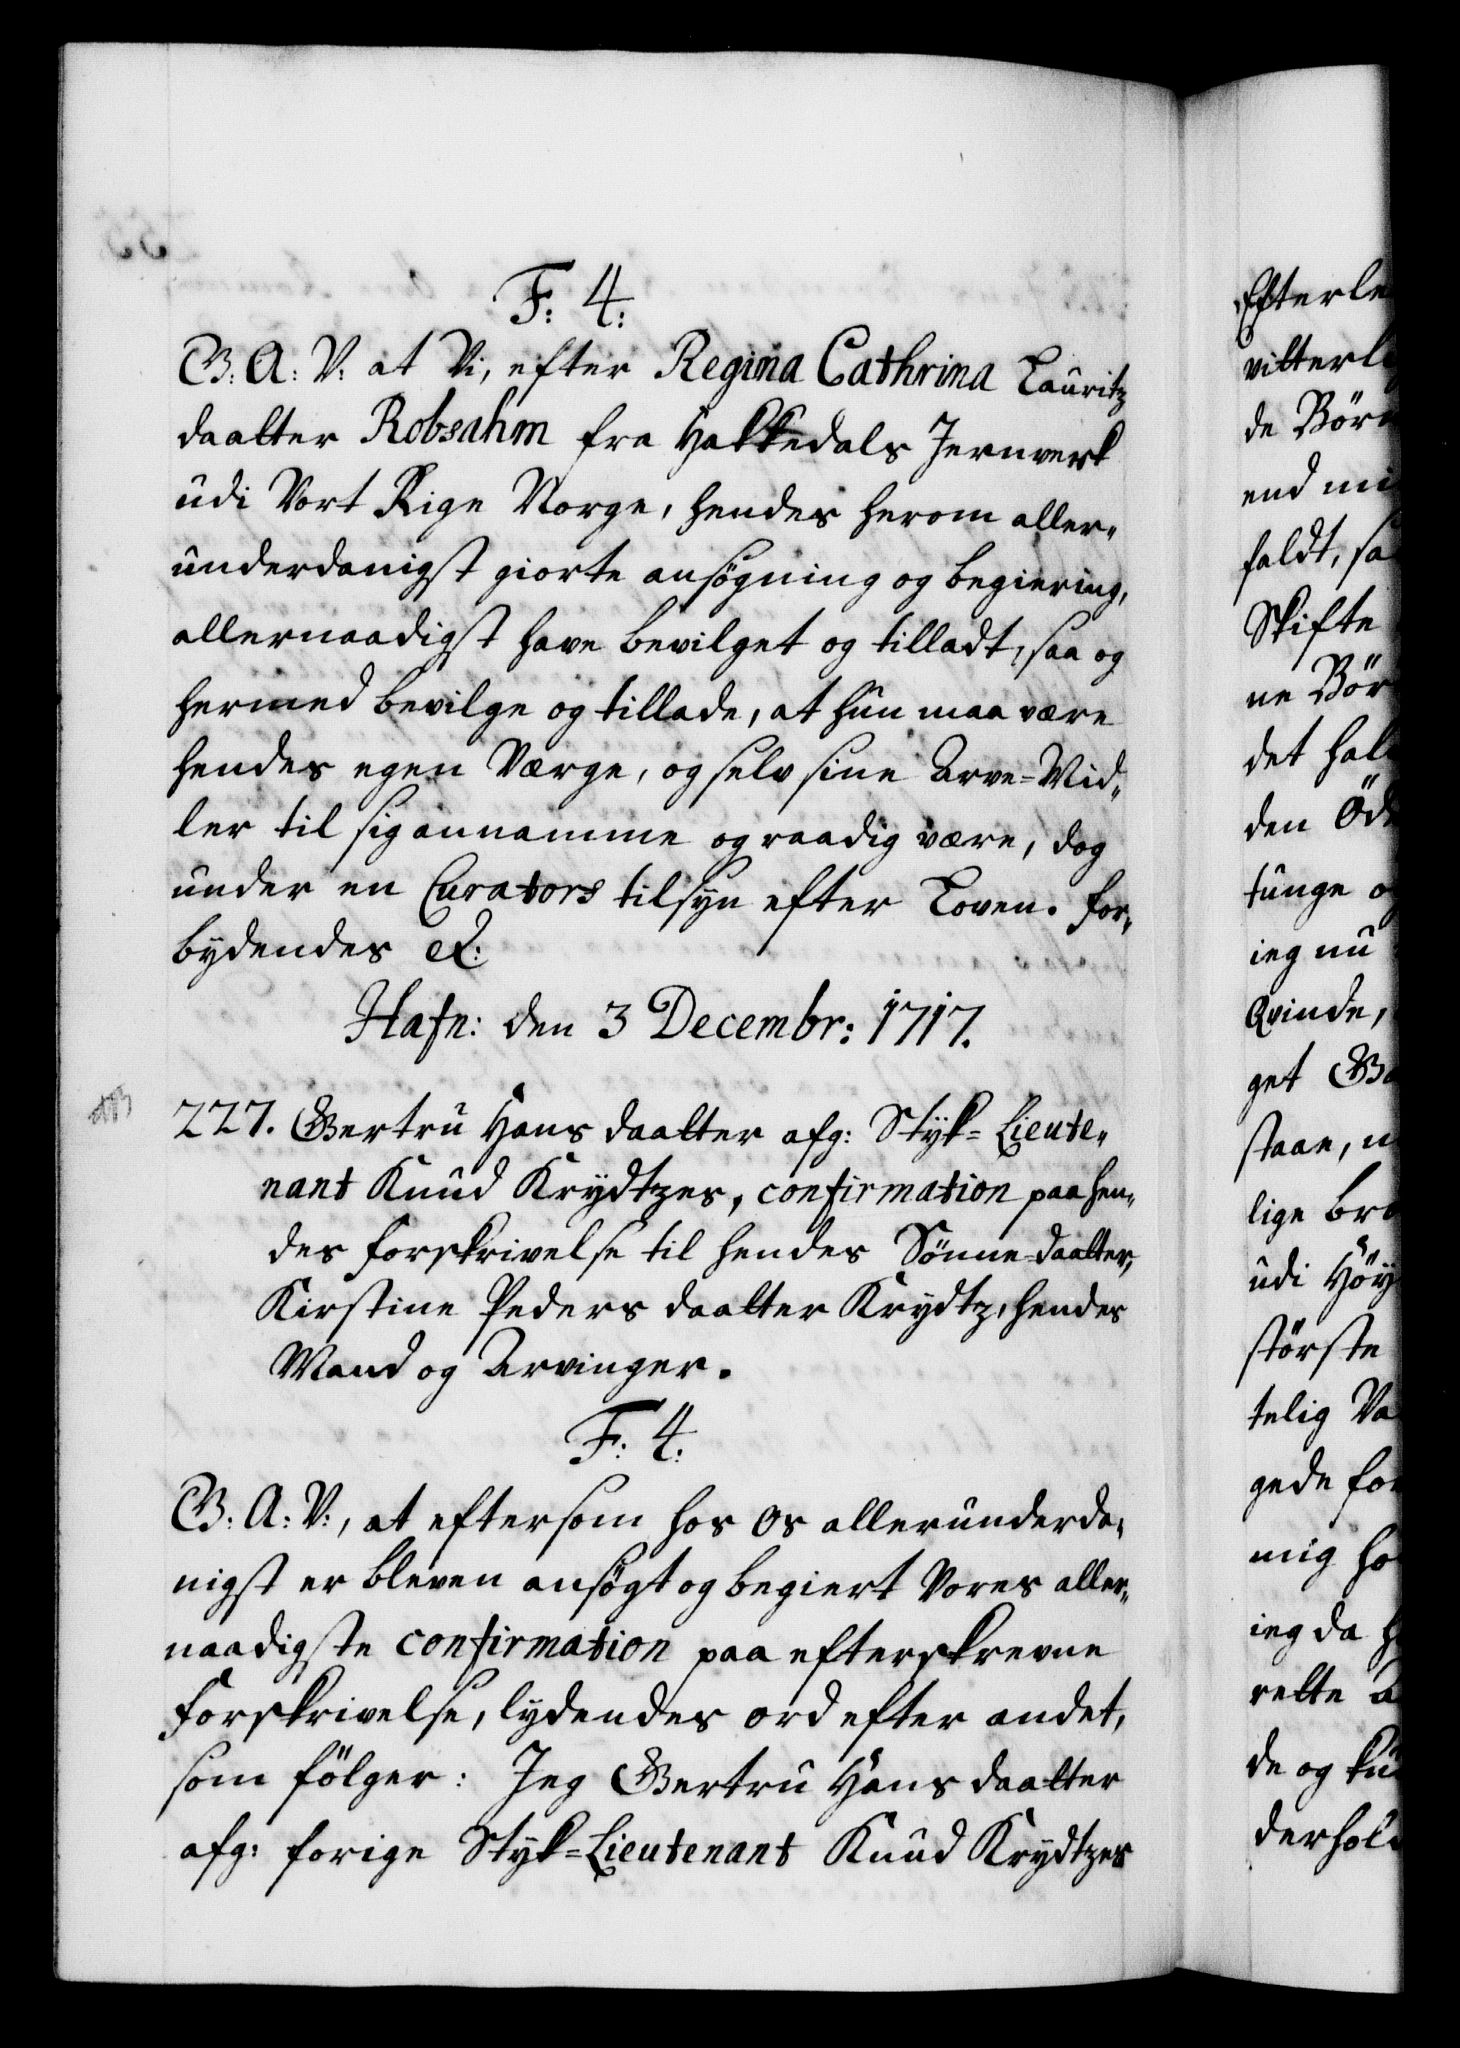 F: 4:
G: A: V: at Vi, efter Regina Cathrina Lauritz
daatter Robsahm fra Hakkedals Jernverk
udi Vort Rige Norge, hendes herom aller-
underdanigst giorte ansøgning og begiering,
allernaadigst have bevilget og tilladt, saa og
hermed bevilge og tillade, at hun maa være
hendes egen Værge, og selv sine Arve-Mid-
ler til sig annamme og raadig være, dog
under en Curators tilsyn efter Loven. For-
bydendes &:
Hafn: den 3 Decembr: 1717.
227. Gertru Hans daatter afg: Styk-Lieute-
nant Knud Krydtzes, confirmation paa hen-
des forskrivelse til hendes Sönne-daatter,
Kirstine Peders daatter Krydtz, hendes
Mand og Arvinger.
F: 4:
G: A: V:, at eftersom hos Os allerunderda-
nigst er bleven ansøgt og begiert Vores aller-
naadigste confirmation paa efterskrevne
forskrivelse, lydendes ord efter andet,
som fölger: Jeg Gertru Hans daatter
afg: forige Styk-Lieutenant Knud Krydtzes
Efterle
vitterl
de Börn
end mi
faldt, sa
Skifte
ne Bör
det hal
den Öd
tunge o
ieg nu
Qvinde,
get Go
staae, u
lige bro
udi Höy
störste
telig Va
gede for
mig ho
ieg da h
rette A
de og ku
derhold